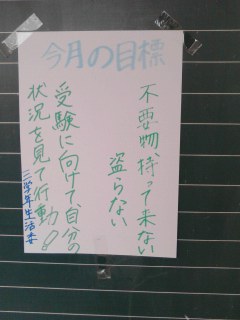 今月の目標
不要物、持って来ない
盗らない
受験に向けて、自分の
状況を見て行動!
三学年生活委